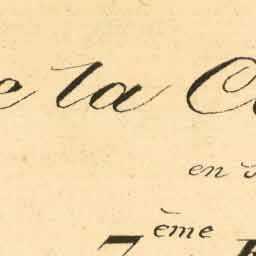 e la C
en
7ème